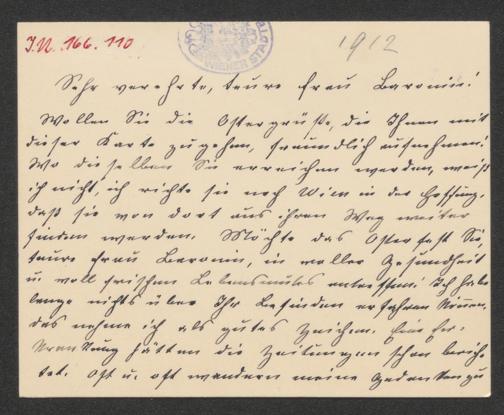 J.N. 166.110
WIENER STADT
1912
Sehr verehrte, teure Frau Baronin!
Wollen Sie die Ostergrüße, die Ihnen mit
dieser Karte zugehen, freundlich aufnehmen!
Wo dieselben Sie erreichen werden, weiß
ich nicht, ich richte sie nach Wien in der Hoffnung,
daß sie von dort aus ihren Weg weiter
finden werden. Möchte das Osterfest Sie,
teure Frau Baronin, in voller Gesundheit
u. voll frischen Lebensmutes antreffen! Ich habe
lange nichts über Ihr Befinden erfahren können,
das nehme ich als gutes Zeichen. Eine Er-
krankung hätten die Zeitungen schon berich-
tet. Oft u. oft wandern meine Gedanken zu